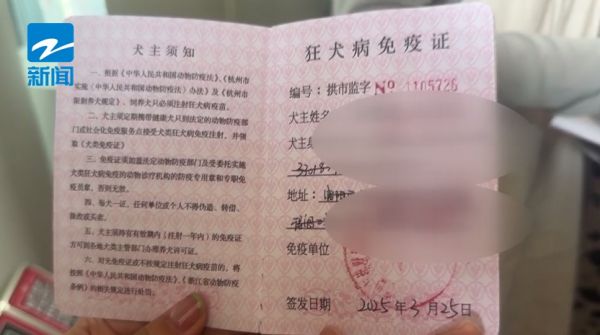 新闻
犬主须知
一、根据《中华人民共和国动物防疫法》、《杭州市
实施〈中华人民共和国动物防疫法〉办法》及《杭州市
限制养犬规定》、饲养犬只必须注射狂犬病疫苗。
二、犬主须定期携带健康犬只到法定的动物防疫部
门或社会化免疫服务点接受犬类狂犬病免疫注射，并领
取《犬类免疫证》
三、免疫证须加盖法定动物防疫部门及受委托实施
犬类狂犬病免疫的动物诊疗机构的防疫专用章和专职免
疫员章，否则无效。
四、每犬一证，任何单位或个人不得伪造、转借、
涂改或买卖。
五、犬主须持有有效期内（注射一年内）的免疫证
方可到各地犬类主管部门办理养犬许可证。
六、对无免疫证或不按规定注射狂犬病疫苗的，将
按照《中华人民共和国动物防疫法》、《浙江省动物防疫
条例》的相关规定进行处罚。
狂犬病免疫证
编号：拱市监字 No 1105726
犬主姓名
犬主
地址：
免疫单位
签发日期 2025年3月25日